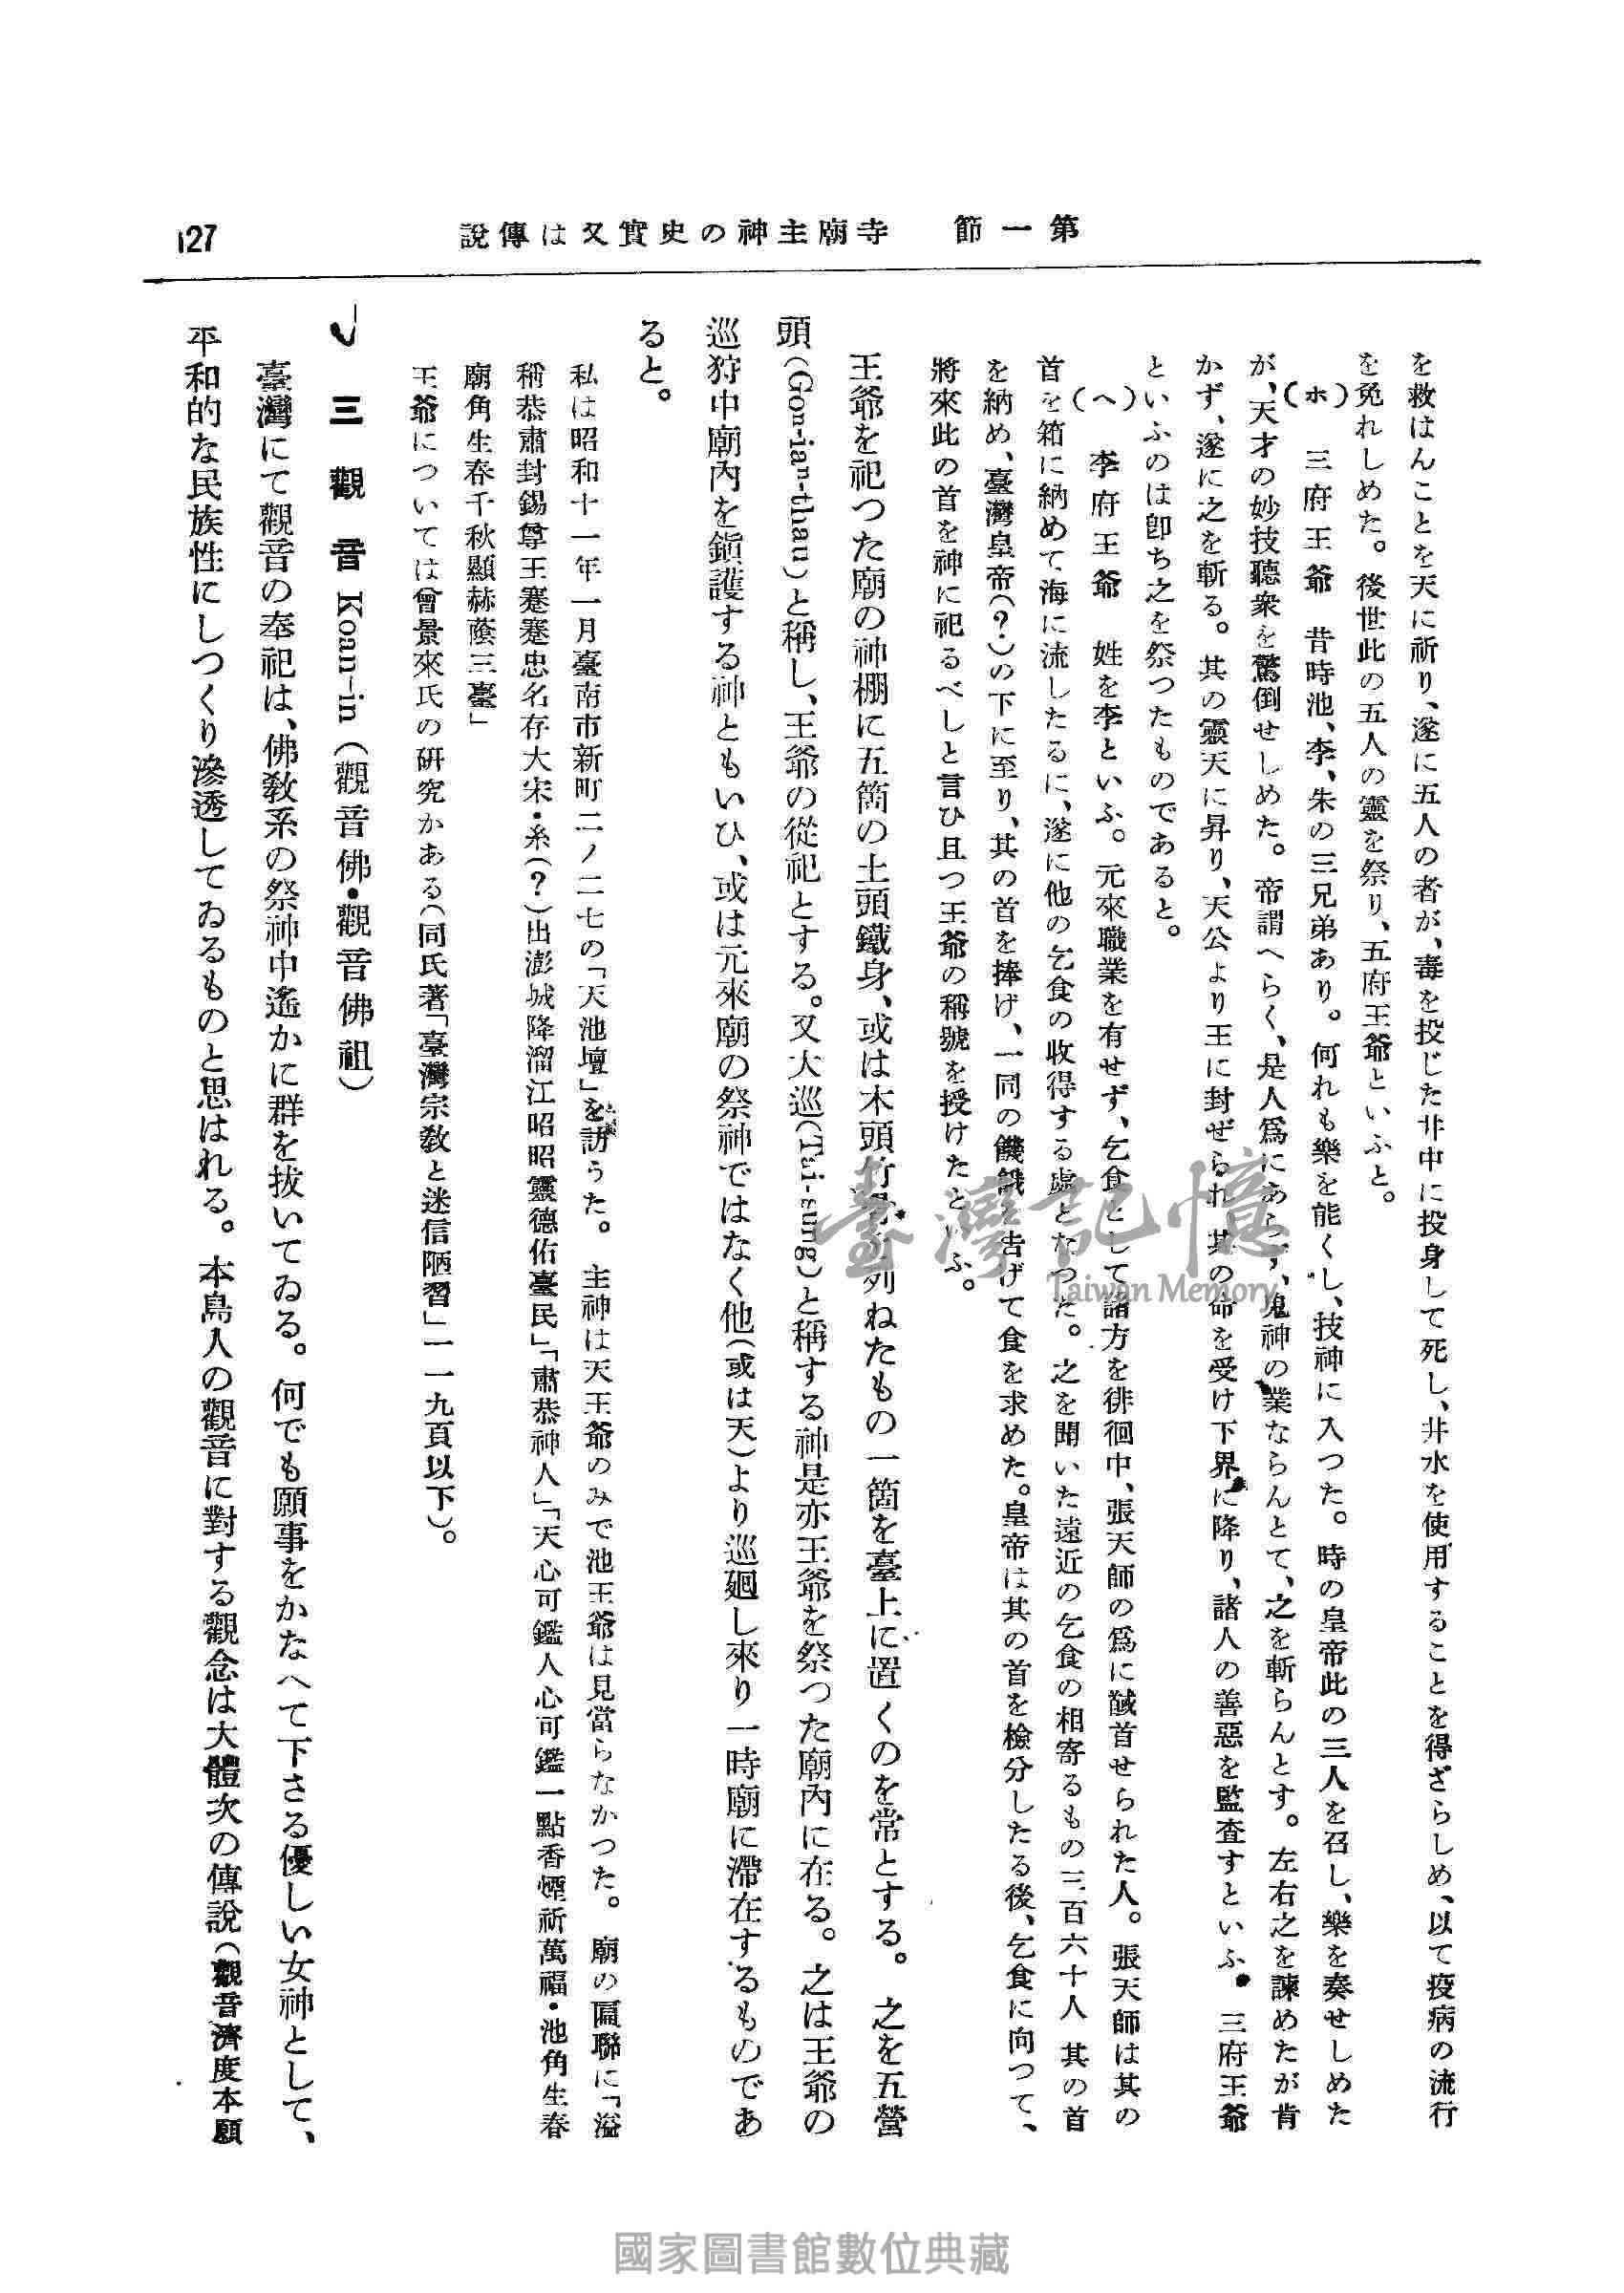 第一節　寺廟主神の史實又は傳說
127
を救はんことを天に祈り、遂に五人の者が、毒を投じた井中に投身して死し、井水を使用することを得ざらしめ、以て疫病の流行
を免れしめた。後世此の五人の靈を祭り、五府王爺といふと。
(ホ)　三府王爺　昔時池、李、朱の三兄弟あり。何れも樂を能くし、技神に入つた。時の皇帝此の三人を召し、樂を奏せしめた
が、天才の妙技聽衆を驚倒せしめた。帝謂へらく、是人爲にあらず、鬼神の業ならんとて、之を斬らんとす。左右之を諫めたが肯
かず、遂に之を斬る。其の靈天に昇り、天公より王に封ぜられ其の命を受け下界に降り、諸人の善惡を監査すといふ。三府王爺
といふのは卽ち之を祭つたものであると。
(ヘ)　李府王爺　姓を李といふ。元來職業を有せず、乞食として諸方を徘徊中、張天師の爲に馘首せられた人。張天師は其の
首を箱に納めて海に流したるに、遂に他の乞食の收得する處となつた。之を聞いた遠近の乞食の相寄るもの三百六十人 其の首
を納め、臺灣皇帝(?)の下に至り、其の首を捧げ、一同の饑餓を告げて食を求めた。皇帝は其の首を檢分したる後、乞食に向つて、
將來此の首を神に祀るべしと言ひ且つ王爺の稱號を授けたといふ。
王爺を祀つた廟の神棚に五箇の土頭鐵身、或は木頭竹身を列ねたもの一箇を臺上に置くのを常とする。之を五營
頭(Gon-ian-thau)と稱し、王爺の從祀とする。又大巡(Tai-sung)と稱する神是亦王爺を祭つた廟內に在る。之は王爺の
巡狩中廟內を鎭護する神ともいひ、或は元來廟の祭神ではなく他(或は天)より巡廻し來り一時廟に滯在するものであ
ると。
私は昭和十一年一月臺南市新町二ノ二七の「天池壇」を訪うた。主神は天王爺のみで池王爺は見當らなかつた。廟の匾聯に「溢
稱恭肅封錫尊王蹇蹇忠名存大宋・系(?)出澎城降溜江昭昭靈德佑臺民」「肅恭神人」「天心可鑑人心可鑑一點香煙祈萬福・池角生春
廟角生春千秋顯赫蔭三臺」
王爺については曾景來氏の硏究がある(同氏著「臺灣宗敎と迷信陋習」一一九頁以下)。
三　觀　音 Koan-in (觀音佛・觀音佛祖)
臺灣にて觀音の奉祀は、佛敎系の祭神中遙かに群を拔いてゐる。何でも願事をかなへて下さる優しい女神として、
平和的な民族性にしつくり滲透してゐるものと思はれる。本島人の觀音に對する觀念は大體次の傳說(觀音濟度本願
臺灣記憶
Taiwan Memory
國家圖書館數位典藏